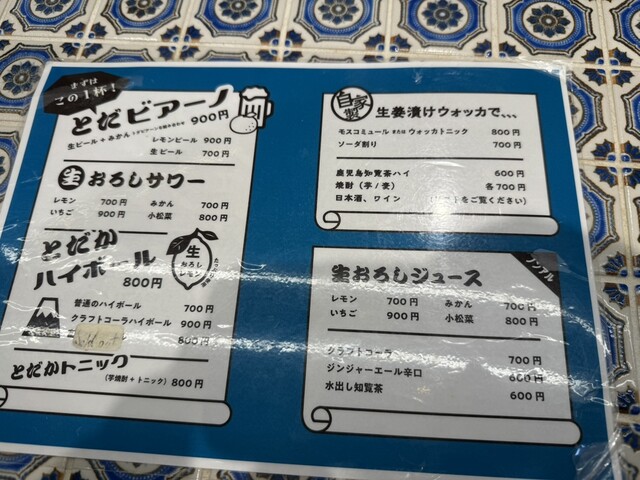 まずは
この1杯!
とだビアーノ 900円
生ビール+みかん
レモンビール 900円
生ビール 700円
生おろしサワー
レモン 700円 みかん 700円
いちご 900円 小松菜 800円
とだか
ハイボール 800円
生
おろし
レモン
普通のハイボール 700円
クラフトコーラハイボール 900円
sold out 800円
とだかトニック (芋焼酎+トニック) 800円
自家製 生姜漬けウォッカで、、、
モスコミュール または ウォッカトニック 800円
ソーダ割り 700円
鹿児島知覧茶ハイ 600円
焼酎(芋/麦) 各700円
日本酒、ワイン をご覧ください)
ノンアル
生おろしジュース
レモン 700円 みかん 700円
いちご 900円 小松菜 800円
クラフトコーラ 700円
ジンジャーエール辛口 600円
水出し知覧茶 600円